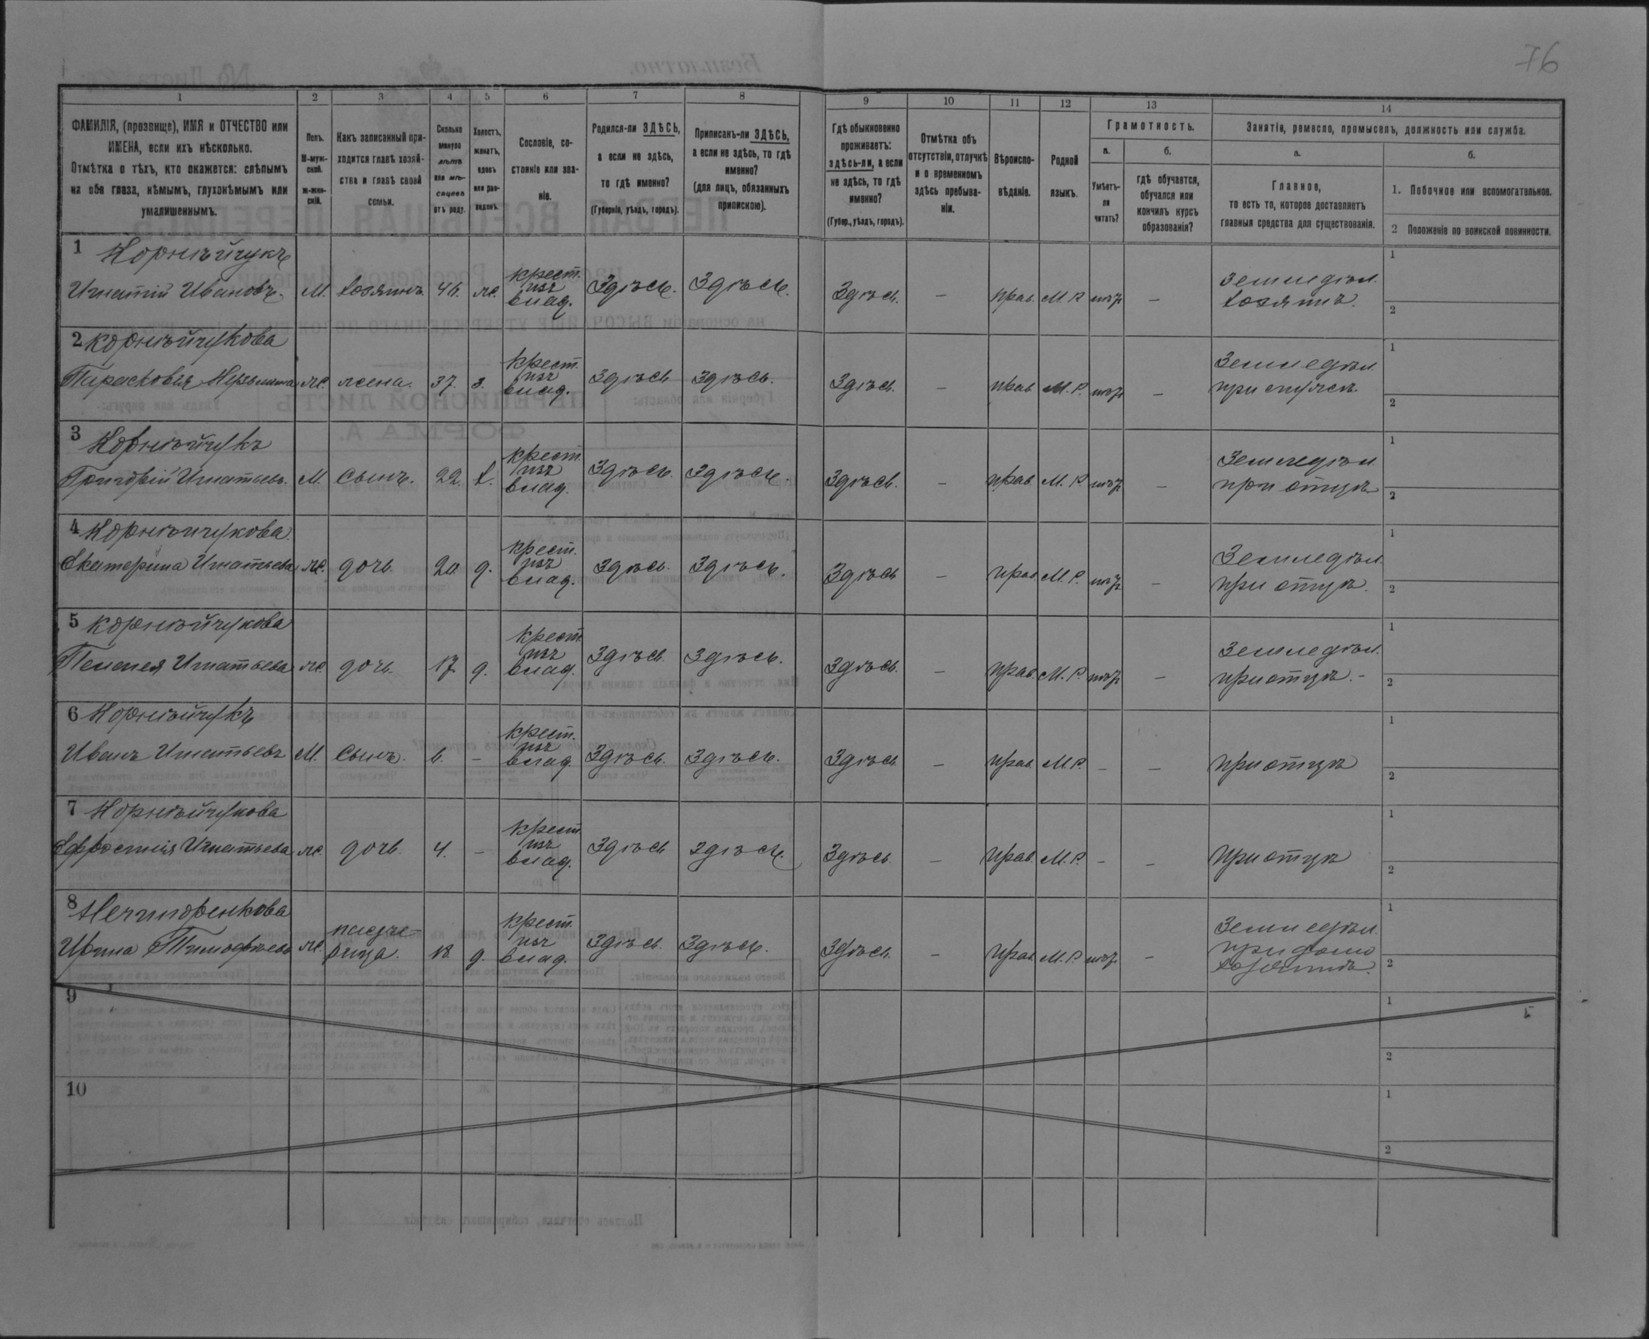 76
1 2 3 4 5 6 7 8 9 10 11 12 13 14
ФАМИЛІЯ, (прозвище), ИМЯ и ОТЧЕСТВО или
ИМЕНА, если ихъ нѣсколько.
Отмѣтка о тѣхъ, кто окажется: слѣпымъ
на оба глаза, нѣмымъ, глухонѣмымъ или
умалишеннымъ.
Полъ.
М-муж-
ской.
ж-жен-
скій.
Какъ записанный при-
ходится главѣ хозяй-
ства и главѣ своей
семьи.
Сколько
минуло
лѣтъ
или мѣ-
сяцевъ
отъ роду.
Холостъ,
женатъ,
вдовъ
или раз-
веденъ.
Сословіе, со-
стояніе или зва-
ніе.
Родился-ли ЗДѢСЬ,
а если не здѣсь,
то гдѣ именно?
(Губернія, уѣздъ, городъ).
Приписанъ-ли ЗДѢСЬ,
а если не здѣсь, то гдѣ
именно?
(для лицъ, обязанныхъ
припискою).
Гдѣ обыкновенно
проживаетъ:
здѣсь-ли, а если
не здѣсь, то гдѣ
именно?
(Губер., уѣздъ, городъ).
Отмѣтка объ
отсутствіи, отлучкѣ
и о временномъ
здѣсь пребыва-
ніи.
Вѣроиспо-
вѣданіе.
Родной
языкъ.
Грамотность.
а.
Умѣетъ-
ли
читать?
б.
гдѣ обучается,
обучался или
кончилъ курсъ
образованія?
Занятіе, ремесло, промыселъ, должность или служба.
а.
Главное,
то есть то, которое доставляетъ
главныя средства для существованія.
б.
1. Побочное или вспомогательное.
2 Положеніе по воинской повинности.
1 Корнѣйчукъ
Игнатій Ивановъ. М. хозяинъ 46. ж. крест. изъ влад. Здѣсь. Здѣсь. Здѣсь. – прав. М.Р. нѣт – земледѣл. хозяинъ. 1 2
2 Корнѣйчукова
Парасковія ж. жена. 37. з. крест. изъ влад. Здѣсь Здѣсь. Здѣсь. – прав. М.Р. нѣт – Земледѣл. при 1 2
3 Корнѣйчукъ
Григорій Игнатьевъ М. сынъ. 22. х. крест. изъ влад. Здѣсь Здѣсь Здѣсь. – прав. М.Р. нѣт – Земледѣл при отцѣ 1 2
4 Корнѣйчукова
Екатерина Игнатьева ж. дочь. 20. д. крест. изъ влад. Здѣсь. Здѣсь. Здѣсь – прав М.Р. нѣт – Земледѣл. при отцѣ. 1 2
5 Корнѣйчукова
Пелагея Игнатьева ж. дочь. 17. д. крест. изъ влад. Здѣсь. Здѣсь. Здѣсь. – прав. М.Р. нѣт – Земледѣл. при отцѣ. – 1 2
6 Корнѣйчукъ
Иванъ Игнатьевъ М. Сынъ. 6. – крест. изъ влад. Здѣсь. Здѣсь. Здѣсь – прав М.Р. – – при отцѣ 1 2
7 Корнѣйчукова
Ефросинія Игнатьева ж. дочь. 4. – крест. изъ влад. Здѣсь Здѣсь. Здѣсь. – прав М.Р. – – при отцѣ 1 2
8 Нечипоренкова
Ирина Тимофѣева ж. падче- рица. 18 д. крест. изъ влад. Здѣсь. Здѣсь. Здѣсь. – прав М.Р. нѣт – Земледѣл. 1 2
9 1 2
10 1 2